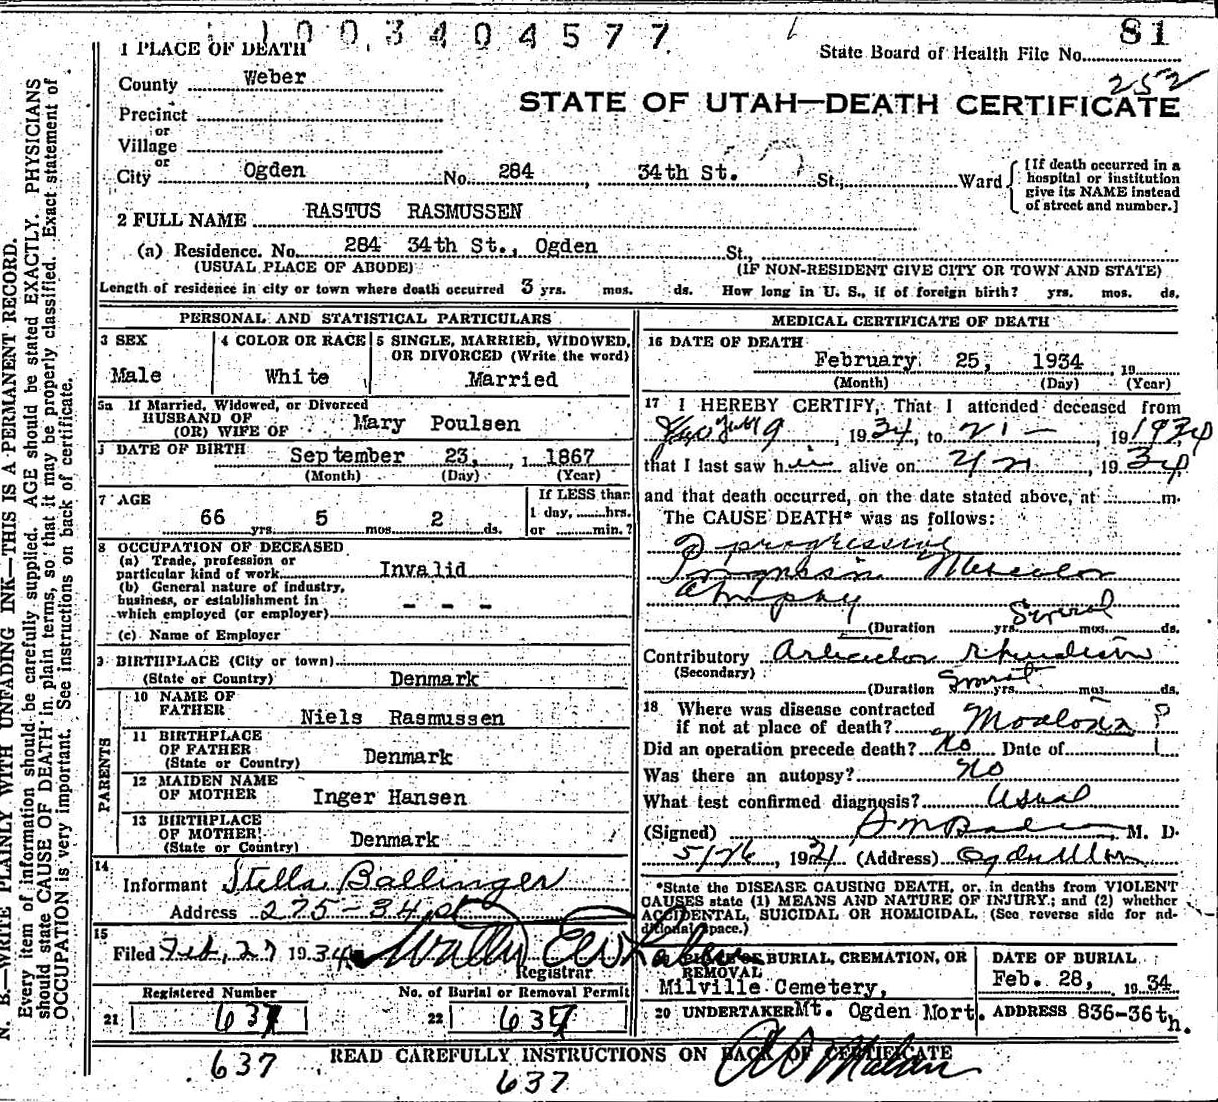 1003404577
81
State Board of Health File No.
252
1 PLACE OF DEATH
County Weber
STATE OF UTAH—DEATH CERTIFICATE
Precinct
or
Village
or
City Ogden No. 284 34th St. St., Ward
[If death occurred in a
hospital or institution
give its NAME instead
of street and number.]
2 FULL NAME RASTUS RASMUSSEN
(a) Residence. No. 284 34th St., Ogden St.,
(USUAL PLACE OF ABODE) (IF NON-RESIDENT GIVE CITY OR TOWN AND STATE)
Length of residence in city or town where death occurred 3 yrs. mos. ds. How long in U. S., if of foreign birth? yrs. mos. ds.
PERSONAL AND STATISTICAL PARTICULARS
3 SEX
Male
4 COLOR OR RACE
White
5 SINGLE, MARRIED, WIDOWED,
OR DIVORCED (Write the word)
Married
5a If Married, Widowed, or Divorced
HUSBAND OF
(OR) WIFE OF Mary Poulsen
DATE OF BIRTH
September 23, 1 1867
(Month) (Day) (Year)
7 AGE
66 yrs. 5 mos. 2 ds.
If LESS than
1 day, hrs.
or min.?
8 OCCUPATION OF DECEASED
(a) Trade, profession or
particular kind of work Invalid
(b) General nature of industry,
business, or establishment in
which employed (or employer) - - -
(c) Name of Employer
9 BIRTHPLACE (City or town)
(State or Country) Denmark
PARENTS
10 NAME OF
FATHER Niels Rasmussen
11 BIRTHPLACE
OF FATHER
(State or Country) Denmark
12 MAIDEN NAME
OF MOTHER Inger Hansen
13 BIRTHPLACE
OF MOTHER
(State or Country) Denmark
14
Informant Stella Ballinger
Address 275-34 st
15
Filed Feb. 27 1934
Registrar
Registered Number
21 637
No. of Burial or Removal Permit
22 637
637
637
MEDICAL CERTIFICATE OF DEATH
16 DATE OF DEATH
February 25, 1934, 19
(Month) (Day) (Year)
17 I HEREBY CERTIFY, That I attended deceased from
9, 1934, to 21-, 19 1934
that I last saw him alive on, 1934
and that death occurred, on the date stated above, at m.
The CAUSE DEATH* was as follows:
progressive
Progressive Muscular
Atrophy
(Duration yrs. Several mos. ds.
Contributory
(Secondary)
(Duration yrs. mos. ds.
18 Where was disease contracted
if not at place of death? ?
Did an operation precede death? No Date of
Was there an autopsy? no
What test confirmed diagnosis? Usual
(Signed) M. D.
, 19 (Address) Ogden Utah
*State the DISEASE CAUSING DEATH, or, in deaths from VIOLENT
CAUSES state (1) MEANS AND NATURE OF INJURY; and (2) whether
ACCIDENTAL, SUICIDAL OR HOMICIDAL. (See reverse side for ad-
ditional space.)
BURIAL, CREMATION, OR
REMOVAL
Milville Cemetery,
DATE OF BURIAL
Feb. 28, 1934
20 UNDERTAKER Mt. Ogden Mort. ADDRESS 836-36th.
READ CAREFULLY INSTRUCTIONS ON BACK OF CERTIFICATE
N. B.—WRITE PLAINLY WITH UNFADING INK—THIS IS A PERMANENT RECORD.
Every item of information should be carefully supplied. AGE should be stated EXACTLY. PHYSICIANS
should state CAUSE OF DEATH in plain terms, so that it may be properly classified. Exact statement of
OCCUPATION is very important. See instructions on back of certificate.